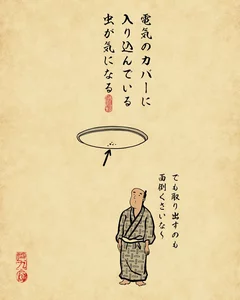 電気のカバーに
入り込んでいる
虫が気になる
でも取り出すのも
面倒くさいな〜